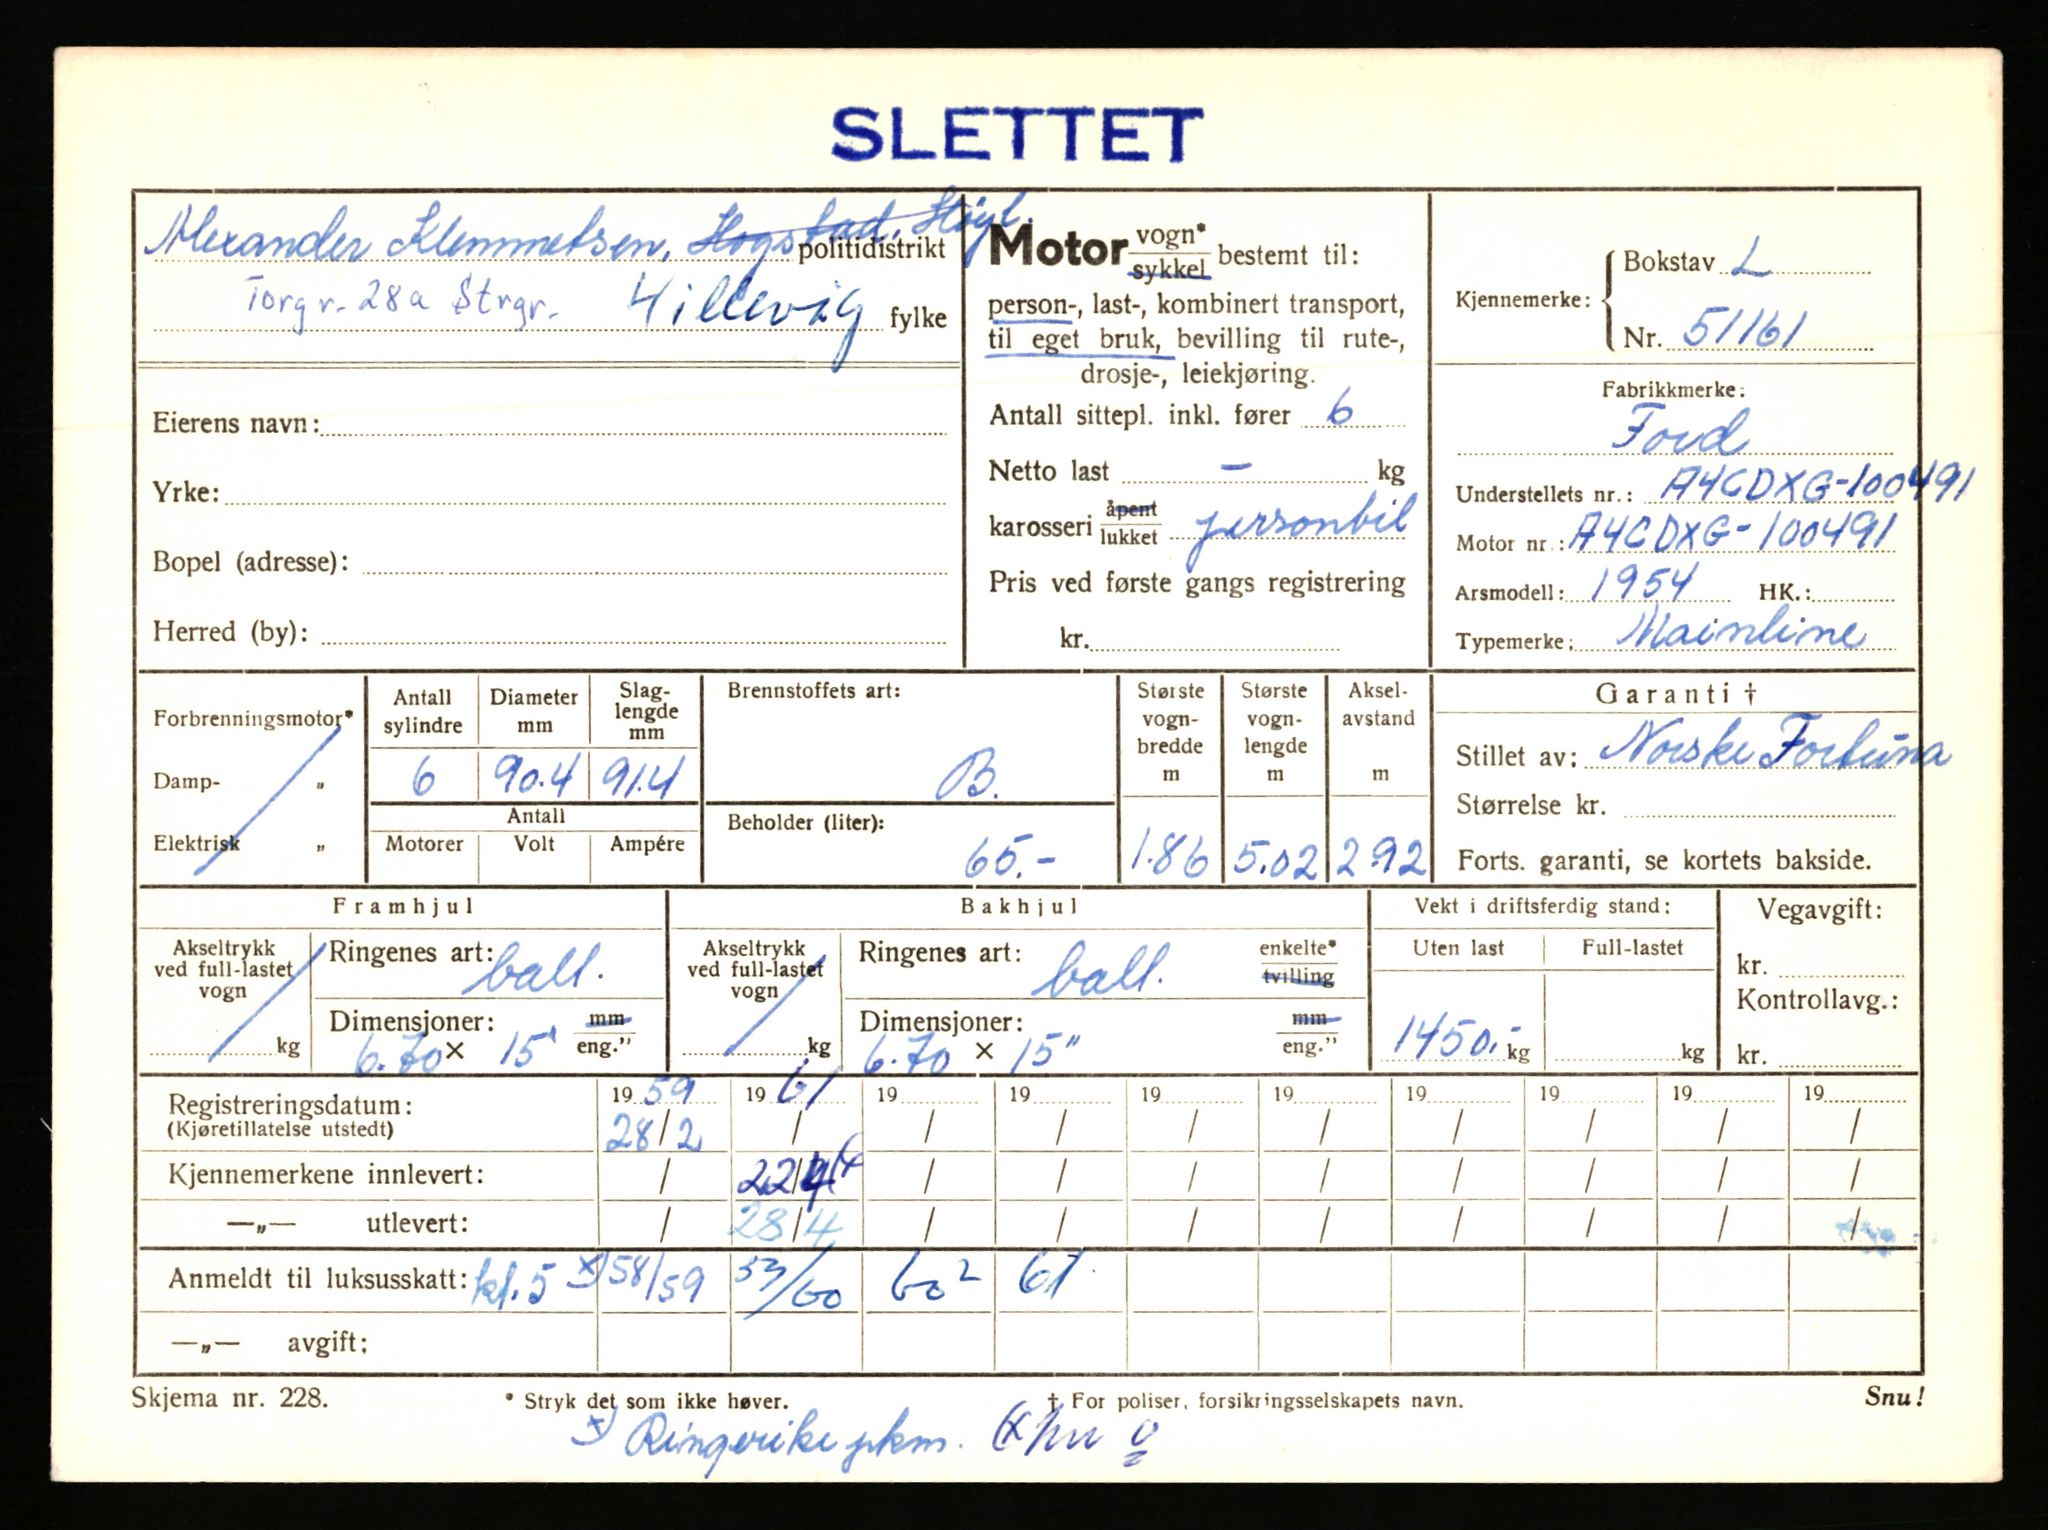 SLETTET
Alexander Klemmetsen, Hogstad, Høyl. politidistrikt
Torgr. 28a Strgr. Hillevåg fylke
Eierens navn:
Yrke:
Bopel (adresse):
Herred (by):
Motor vogn* sykkel bestemt til:
person-, last-, kombinert transport,
til eget bruk, bevilling til rute-,
drosje-, leiekjøring.
Antall sittepl. inkl. fører 6
Netto last – kg
karosseri åpent lukket personbil
Pris ved første gangs registrering
kr.
Kjennemerke: Bokstav L
Nr. 51161
Fabrikkmerke:
Ford
Understellets nr.: A4CDXG-100491
Motor nr.: A4CDXG-100491
Arsmodell: 1954 HK.:
Typemerke: Mainline
Forbrenningsmotor*
Damp- „
Elektrisk „
Antall sylindre
6
Diameter mm
90.4
Slag-
lengde
mm
91.4
Antall
Motorer Volt Ampére
Brennstoffets art:
B.
Beholder (liter):
65.-
Største
vogn-
bredde
m
1.86
Største
vogn-
lengde
m
5.02
Aksel-
avstand
m
2.92
Garanti †
Stillet av: Norske Fortuna
Størrelse kr.
Forts. garanti, se kortets bakside.
Framhjul
Akseltrykk
ved full-lastet
vogn
kg
Ringenes art: ball.
Dimensjoner: mm
6.70 x 15" eng."
Bakhjul
Akseltrykk
ved full-lastet
vogn
kg
Ringenes art: ball. enkelte* tvilling
Dimensjoner: mm
6.70 x 15" eng."
Vekt i driftsferdig stand:
Uten last Full-lastet
1450.- kg kg
Vegavgift:
kr.
Kontrollavg.:
kr.
Registreringsdatum: 19 59 19 61 19 19 19 19 19 19 19 19
(Kjøretillatelse utstedt) 28/2 / / / / / / / / /
Kjennemerkene innlevert: / 22/4 / / / / / / / /
—„— utlevert: / 28/4 / / / / / / / /
Anmeldt til luksusskatt: kl. 5 x) 58/59 59/60 60² 61
—„— avgift:
Skjema nr. 228. * Stryk det som ikke høver. † For poliser, forsikringsselskapets navn. Snu!
x) Ringerike pkm.